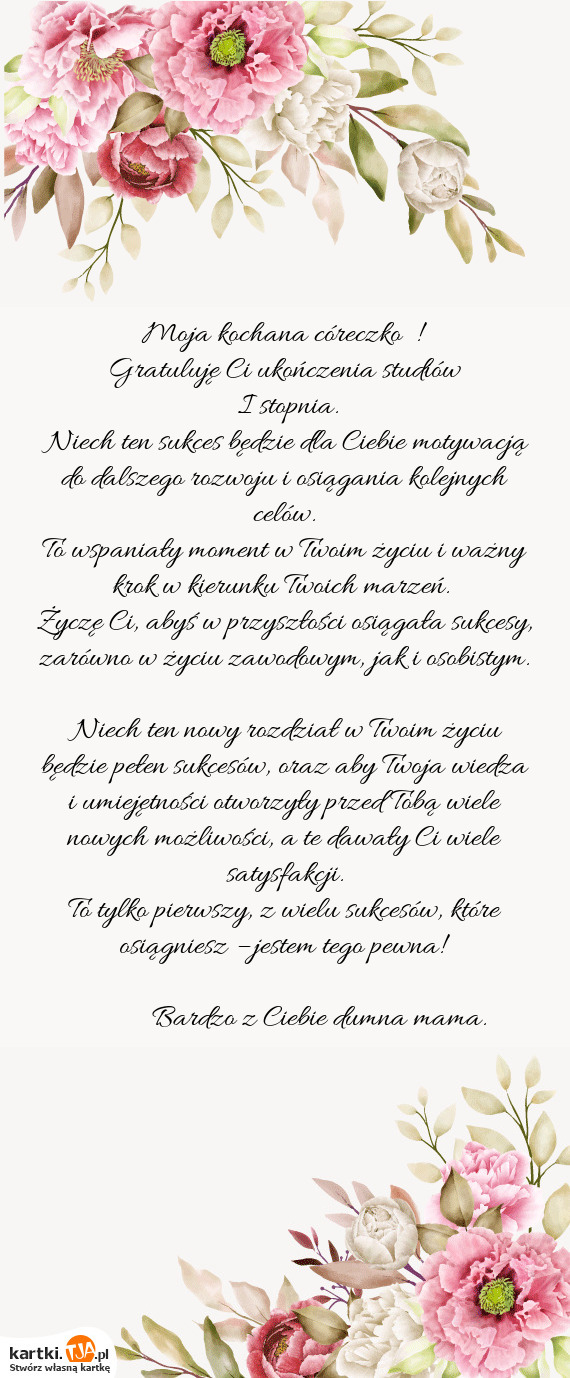 Moja kochana córeczko !
Gratuluję Ci ukończenia studiów
I stopnia.
Niech ten sukces będzie dla Ciebie motywacją
do dalszego rozwoju i osiągania kolejnych
celów.
To wspaniały moment w Twoim życiu i ważny
krok w kierunku Twoich marzeń.
Życzę Ci, abyś w przyszłości osiągała sukcesy,
zarówno w życiu zawodowym, jak i osobistym.
Niech ten nowy rozdział w Twoim życiu
będzie pełen sukcesów, oraz aby Twoja wiedza
i umiejętności otworzyły przed Tobą wiele
nowych możliwości, a te dawały Ci wiele
satysfakcji.
To tylko pierwszy, z wielu sukcesów, które
osiągniesz – jestem tego pewna!
Bardzo z Ciebie dumna mama.
kartki.TJA.pl
Stwórz własną kartkę